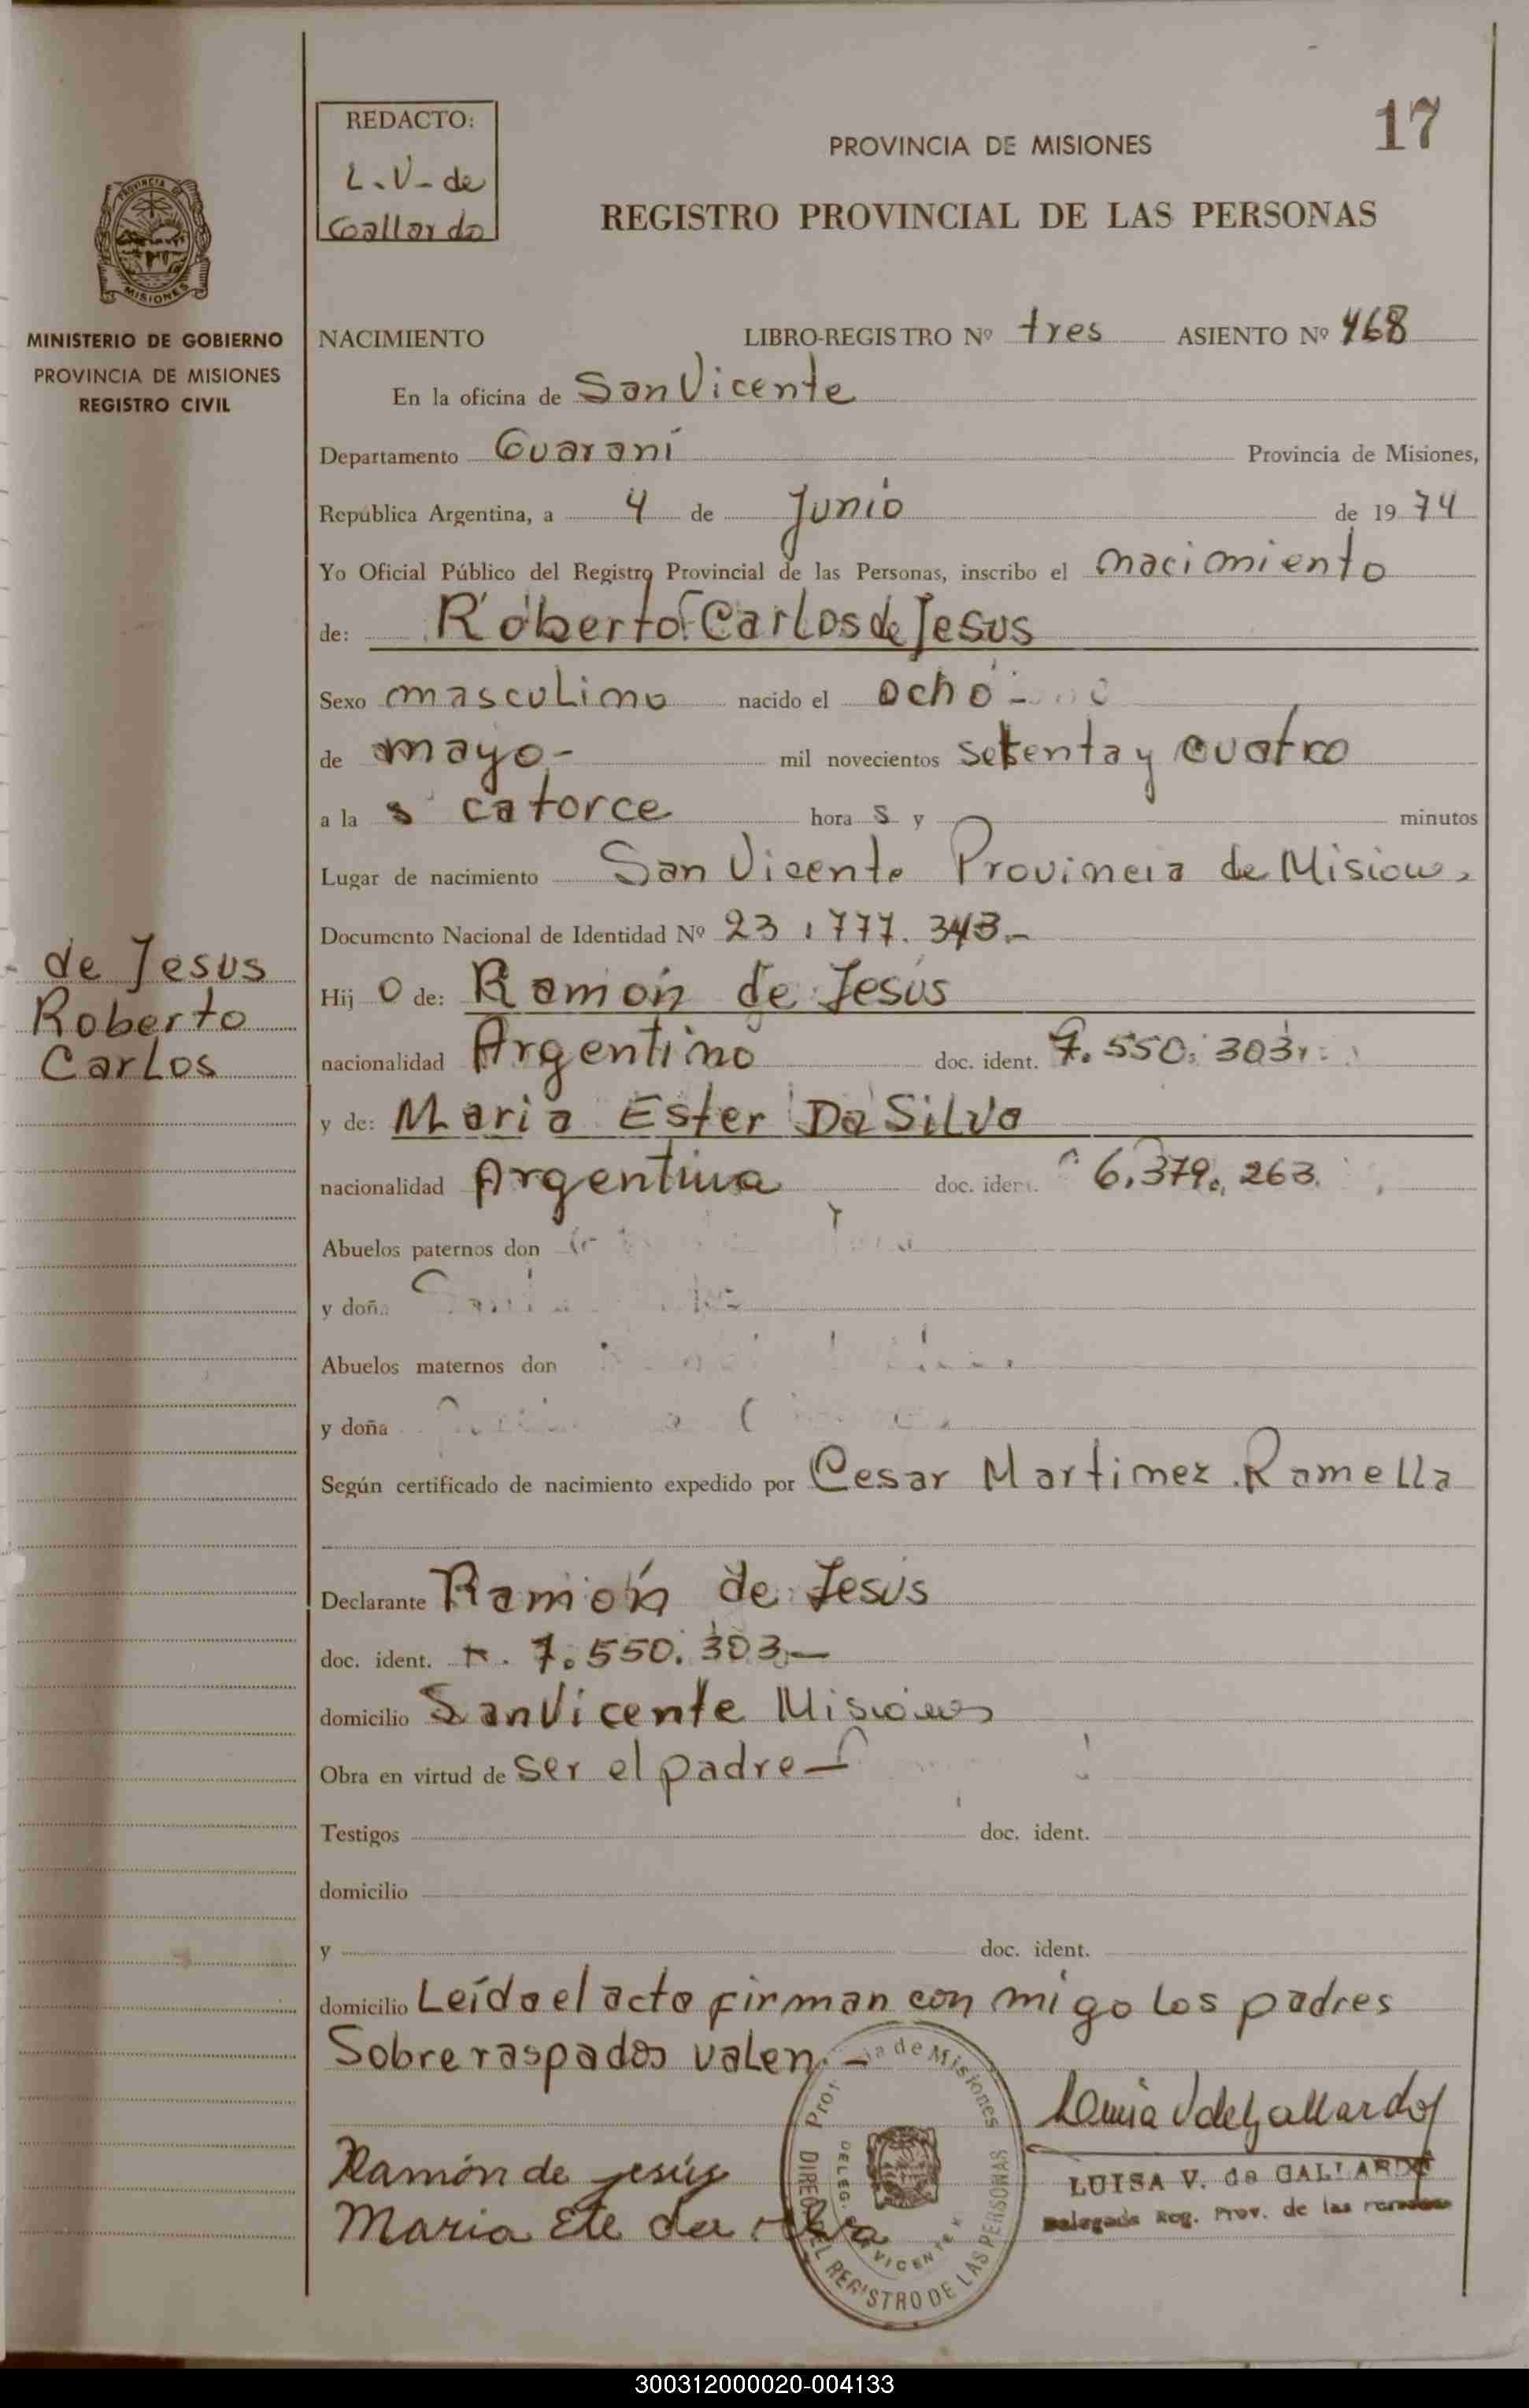 17
REDACTO:
L.V- de
Gallardo
PROVINCIA DE MISIONES
REGISTRO PROVINCIAL DE LAS PERSONAS
MISIONES
MINISTERIO DE GOBIERNO
PROVINCIA DE MISIONES
REGISTRO CIVIL
NACIMIENTO LIBRO-REGISTRO Nº tres ASIENTO Nº 468
En la oficina de San Vicente
Departamento Guaraní Provincia de Misiones,
República Argentina, a 4 de Junio de 1974
Yo Oficial Público del Registro Provincial de las Personas, inscribo el nacimiento
de: Roberto Carlos de Jesus
Sexo masculino nacido el ocho -
de mayo- mil novecientos setenta y cuatro
a las catorce horas y minutos
Lugar de nacimiento San Vicente Provincia de Misiones
Documento Nacional de Identidad Nº 23.777.343.-
de Jesus
Roberto
Carlos
Hijo de: Ramón de Jesús
nacionalidad Argentino doc. ident. 7.550.303
y de: Maria Ester Da Silva
nacionalidad Argentina doc. ident. 6.379.263.
Abuelos paternos don
y doña
Abuelos maternos don
y doña
Según certificado de nacimiento expedido por Cesar Martinez Ramella
Declarante Ramón de Jesús
doc. ident. 7.550.303.-
domicilio San Vicente Misiones
Obra en virtud de ser el padre-
Testigos doc. ident.
domicilio
y doc. ident.
domicilio Leída el acta firman con migo los padres
Sobre raspados valen.-
Ramón de Jesús
Maria Ete da silva
Luisa V de Gallardo
LUISA V. de GALLARDO
Delegada Reg. Prov. de las Personas
de Misiones
REGISTRO DE LAS PERSONAS
300312000020-004133